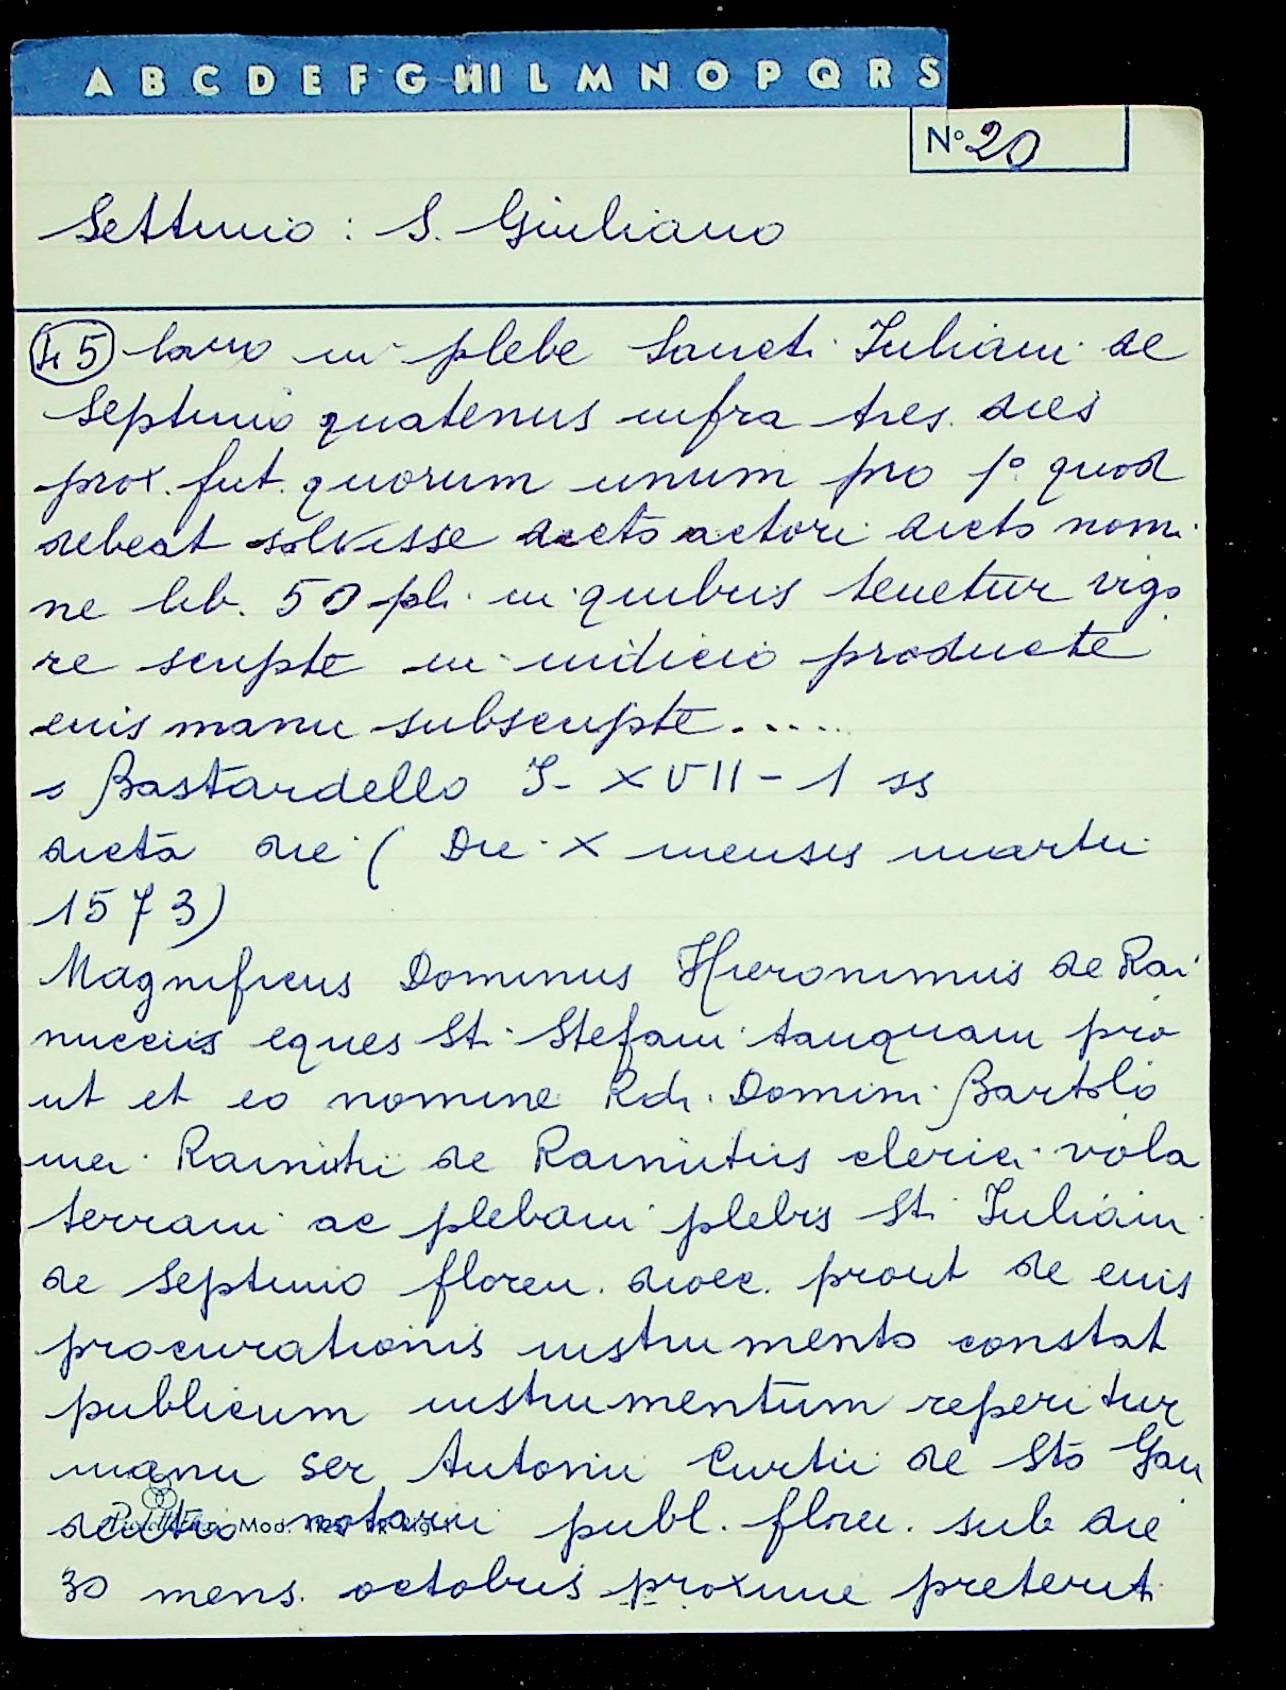 A B C D E F G H I L M N O P Q R S
N° 20
Settimo : S. Giuliano
lano in plebe Sancti Iuliani de
Septimo quatenus infra tres dies
prox. fut. quorum unum pro 1° quod
debeat solvisse dicto actori dicto nomi
ne lib. 50 pli. in quibus tenetur vigo
re scripte in iudicio producte
eius manu subscripte.....
s Bastardello I- XVII - 1 ss
dicta die ( Die X mensis martii
1573)
Magnificus Dominus Hieronimus de Rai
nucciis eques Sti Stefani tanquam pro
ut et eo nomine Rdi. Domini Bartolo
mei Rainuti de Rainutiis clerici vola
terrani ac plebani plebis Sti Iuliani
de Septimo floren. dioec. prout de eius
procurationis instrumento constat
publicum instrumentum reperitur
manu ser Antonii Curtii de Sto Gau
dentio notarii publ. floren. sub die
Mod.
30 mens. octobris proxime preterit.